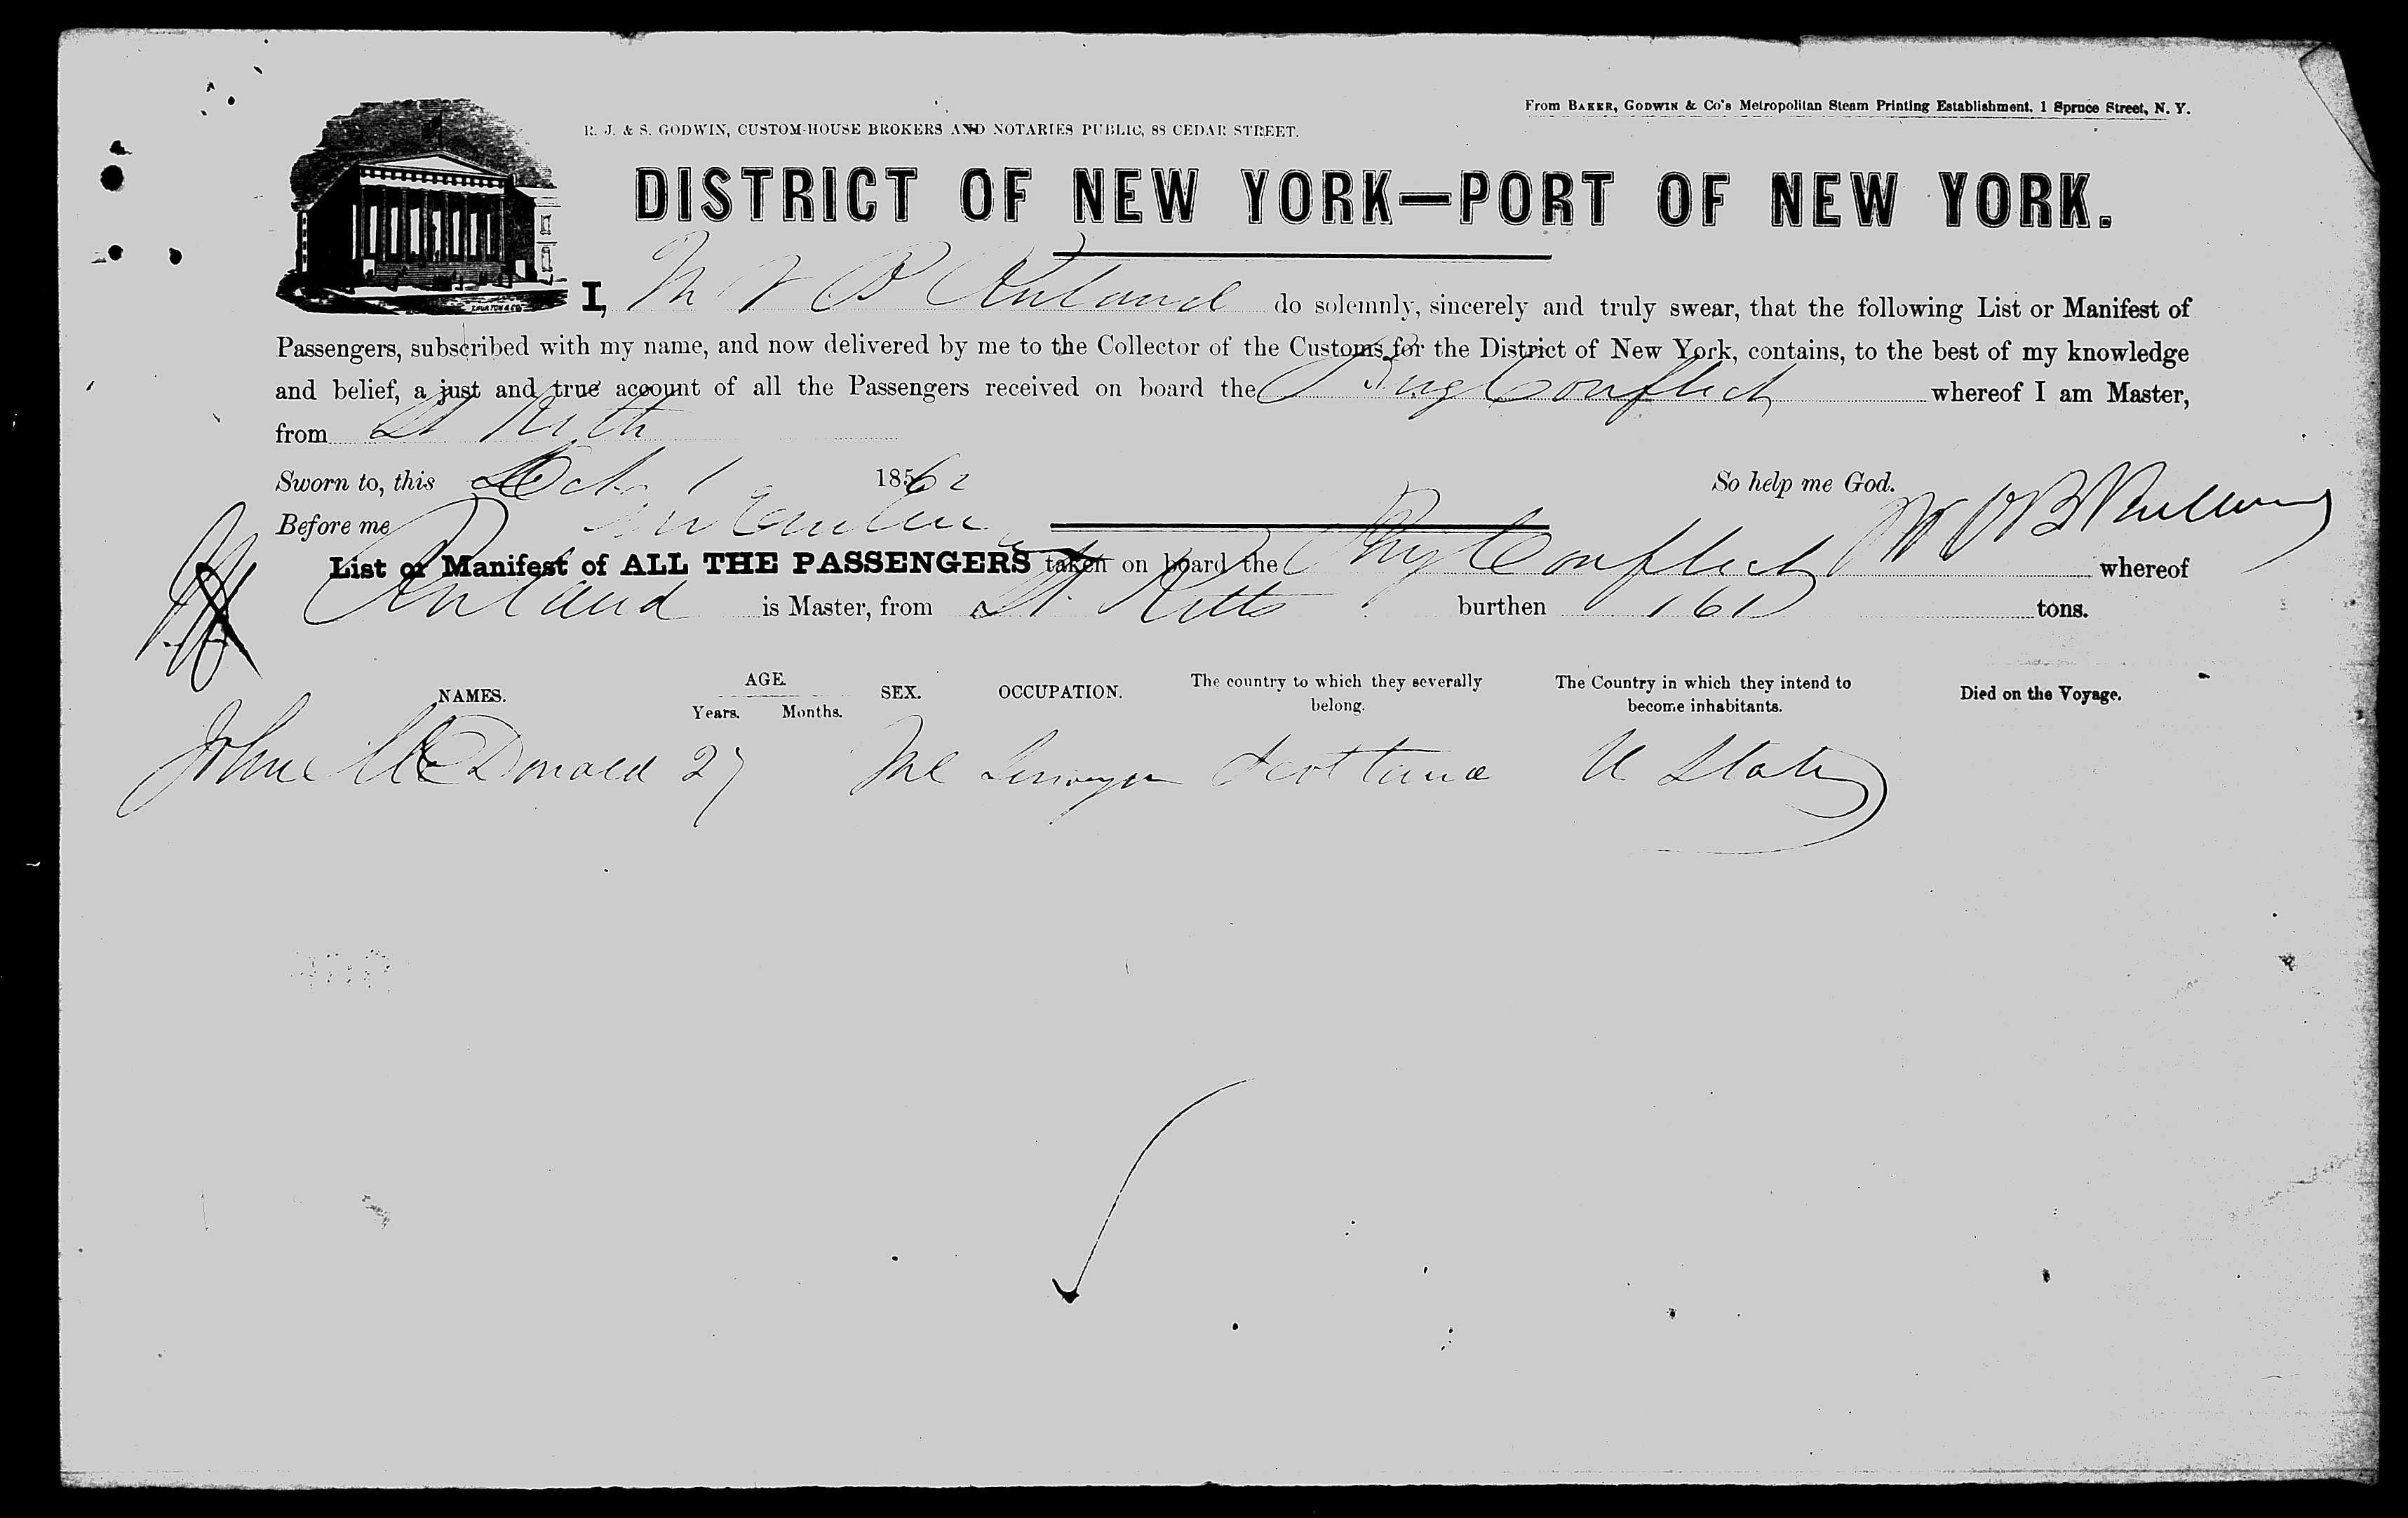 From BAKER, GODWIN & Co's Metropolitan Steam Printing Establishment, 1 Spruce Street, N. Y.
R. J. & S. GODWIN, CUSTOM-HOUSE BROKERS AND NOTARIES PUBLIC, 88 CEDAR STREET.
DISTRICT OF NEW YORK—PORT OF NEW YORK.
I, do solemnly, sincerely and truly swear, that the following List or Manifest of
Passengers, subscribed with my name, and now delivered by me to the Collector of the Customs for the District of New York, contains, to the best of my knowledge
and belief, a just and true account of all the Passengers received on board the Brig Conflict whereof I am Master,
from St Kitts
Sworn to, this Oct 1 1862 So help me God.
Before me
List or Manifest of ALL THE PASSENGERS taken on board the Brig Conflict whereof
is Master, from St. Kitts burthen 161 tons.
NAMES. AGE. Years. Months. SEX. OCCUPATION. The country to which they severally belong. The Country in which they intend to become inhabitants. Died on the Voyage.
John McDonald 27 Ml Surveyor Scotland U States